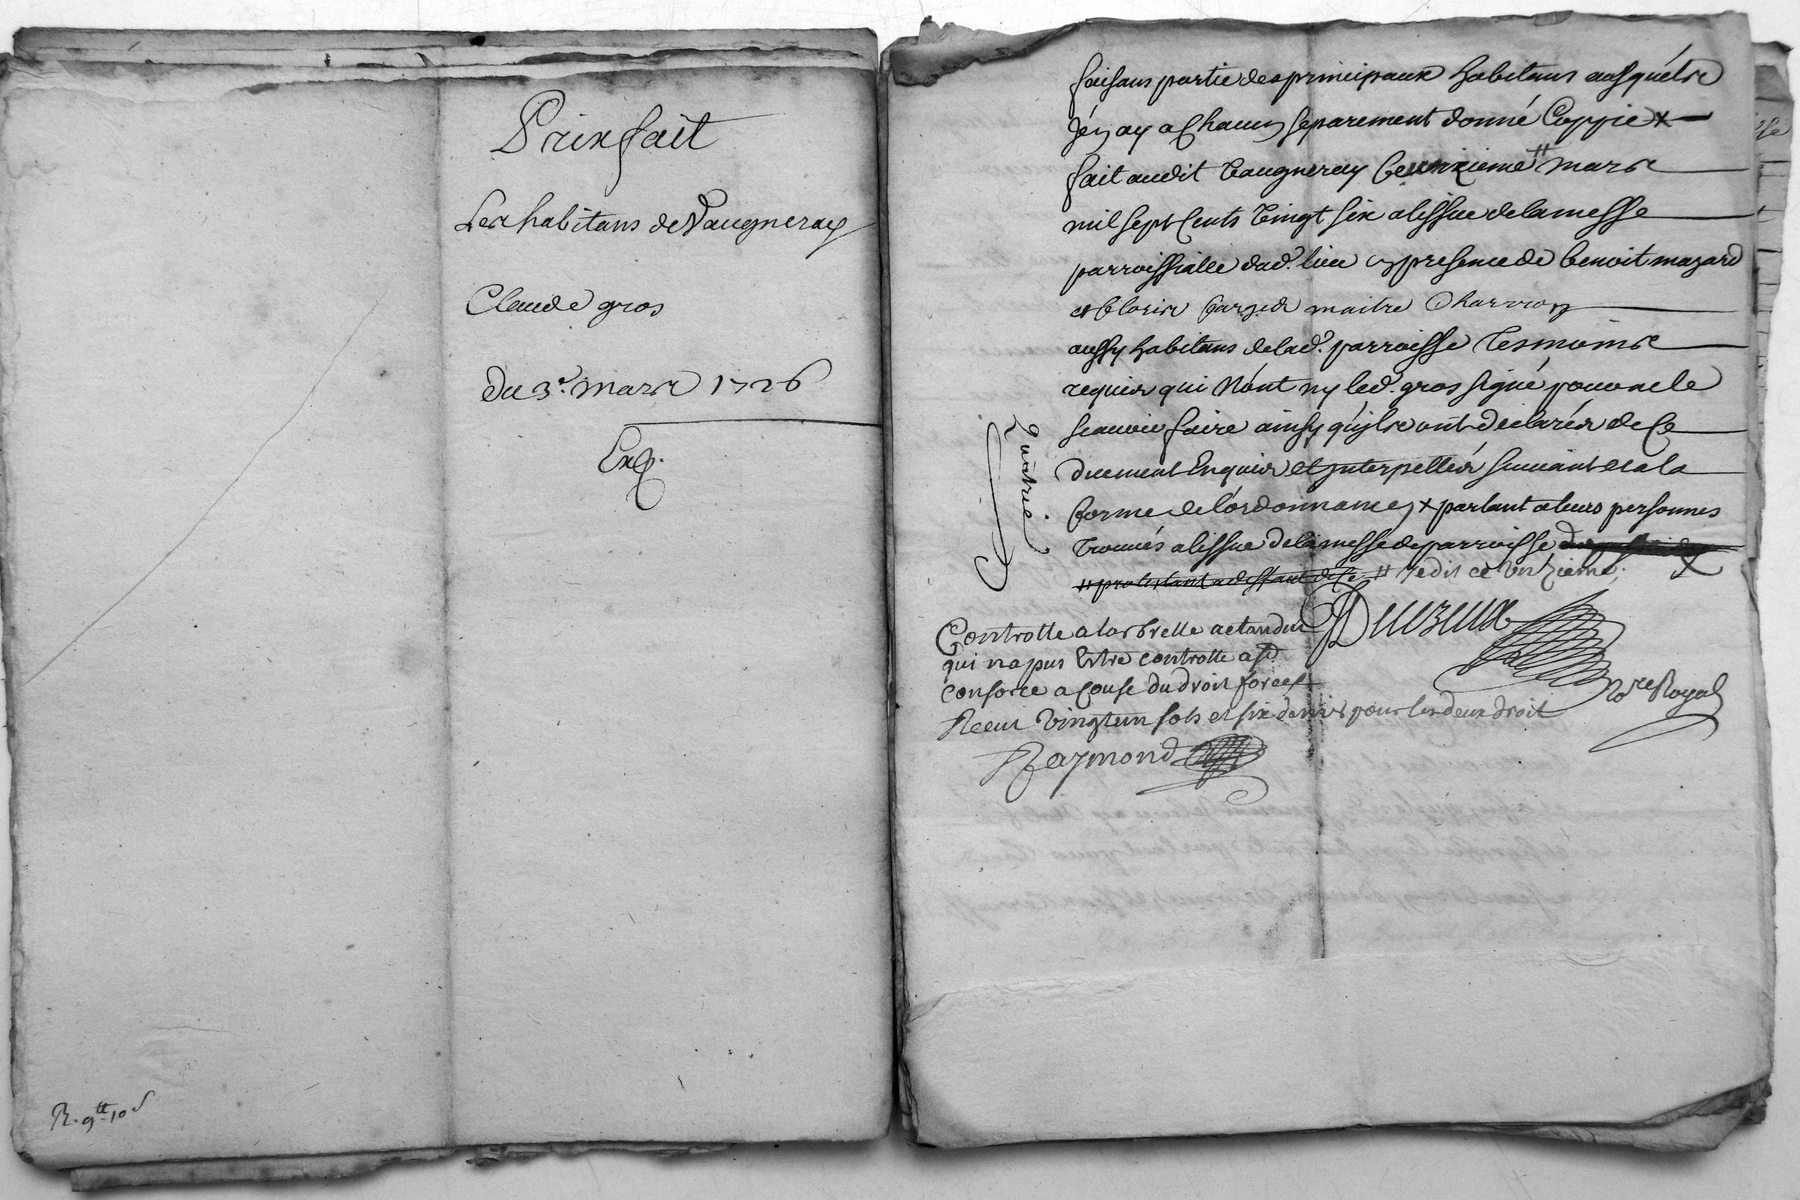 Prixfait
Les habitans de Vaugneray
Claude gros
Du 3e. mars 1726
Exp.
R. 9tt 10 s
faisans partie des principaux habitans ausquels
j'ay a chacun separement donné Coppie x
fait audit Vaugneray Ce unzieme # mars
mil sept Cents Vingt six a lissue de la messe
parroissialle dud. lieu en presence de benoit mazard
et maitre Charron
aussy habitans de lad. parroisse Tesmoins
requis qui n'ont ny led. gros signé pour ne le
scavoir faire ainsy quils ont declarés de Ce
duement Enquis et interpellés suivant et a la
forme de l'ordonnance, x parlant a leurs personnes
trouvés a lissue de la messe de parroisse
# protestant a deffaut de Ce # jedis ce unzieme
quatrie
Controlle a larbrelle actandu
qui na pus Estre controlle a st
consorce a couse du droit forcés
Receu vingt un sols et six deniers pour les deux droit
Raymond
Decrenx
Nore Royal